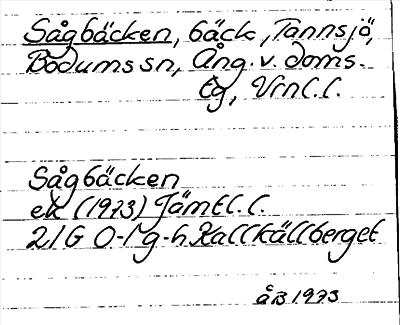 Sågbäcken, bäck, Tannsjö,
Bodums sn, Ång. v. doms-
tg, Vrnl. l.
Sågbäcken
ek (1973) Jämtl. l.
21G 0-1 g-h Kallkällberget
åB 1973